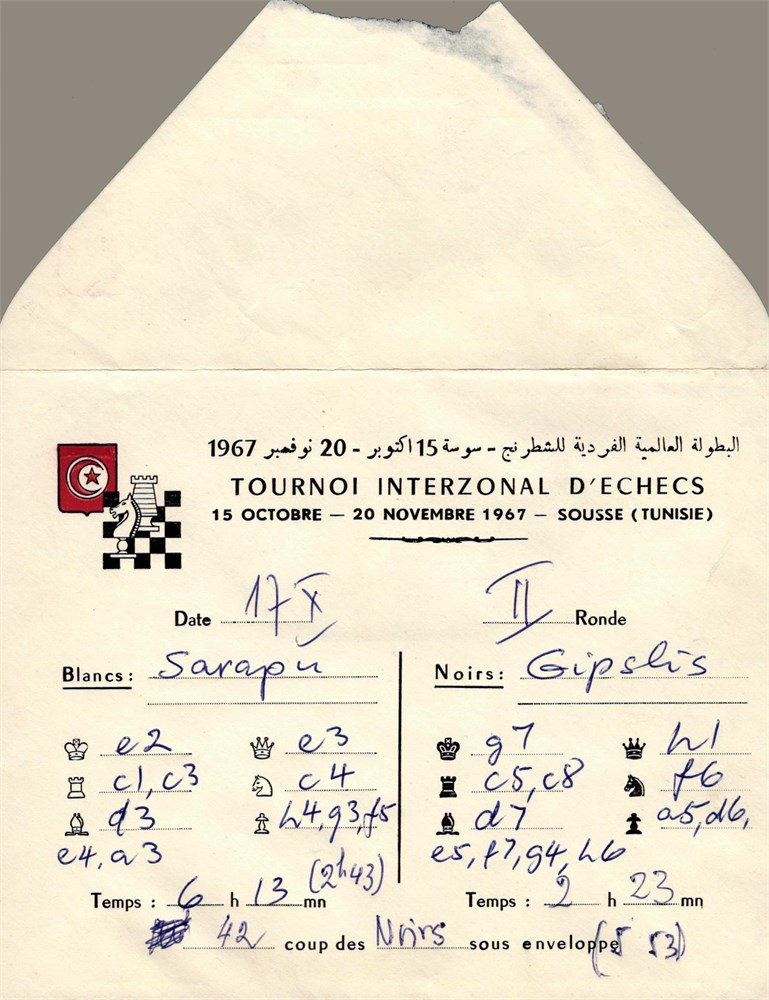 البطولة العالمية الفردية للشطرنج - سوسة 15 اكتوبر - 20 نوفمبر 1967
TOURNOI INTERZONAL D'ECHECS
15 OCTOBRE — 20 NOVEMBRE 1967 — SOUSSE (TUNISIE)
Date 17 X II Ronde
Blancs: Sarapu Noirs: Gipslis
e2 e3 g7 h1
c1, c3 c4 c5, c8 f6
d3 h4, g3, f5 d7 a5, d6,
e4, a3 e5, f7, g4, h6
(2h43)
Temps: 6 h 13 mn Temps: 2 h 23 mn
42 coup des Noirs sous enveloppe (5 53)